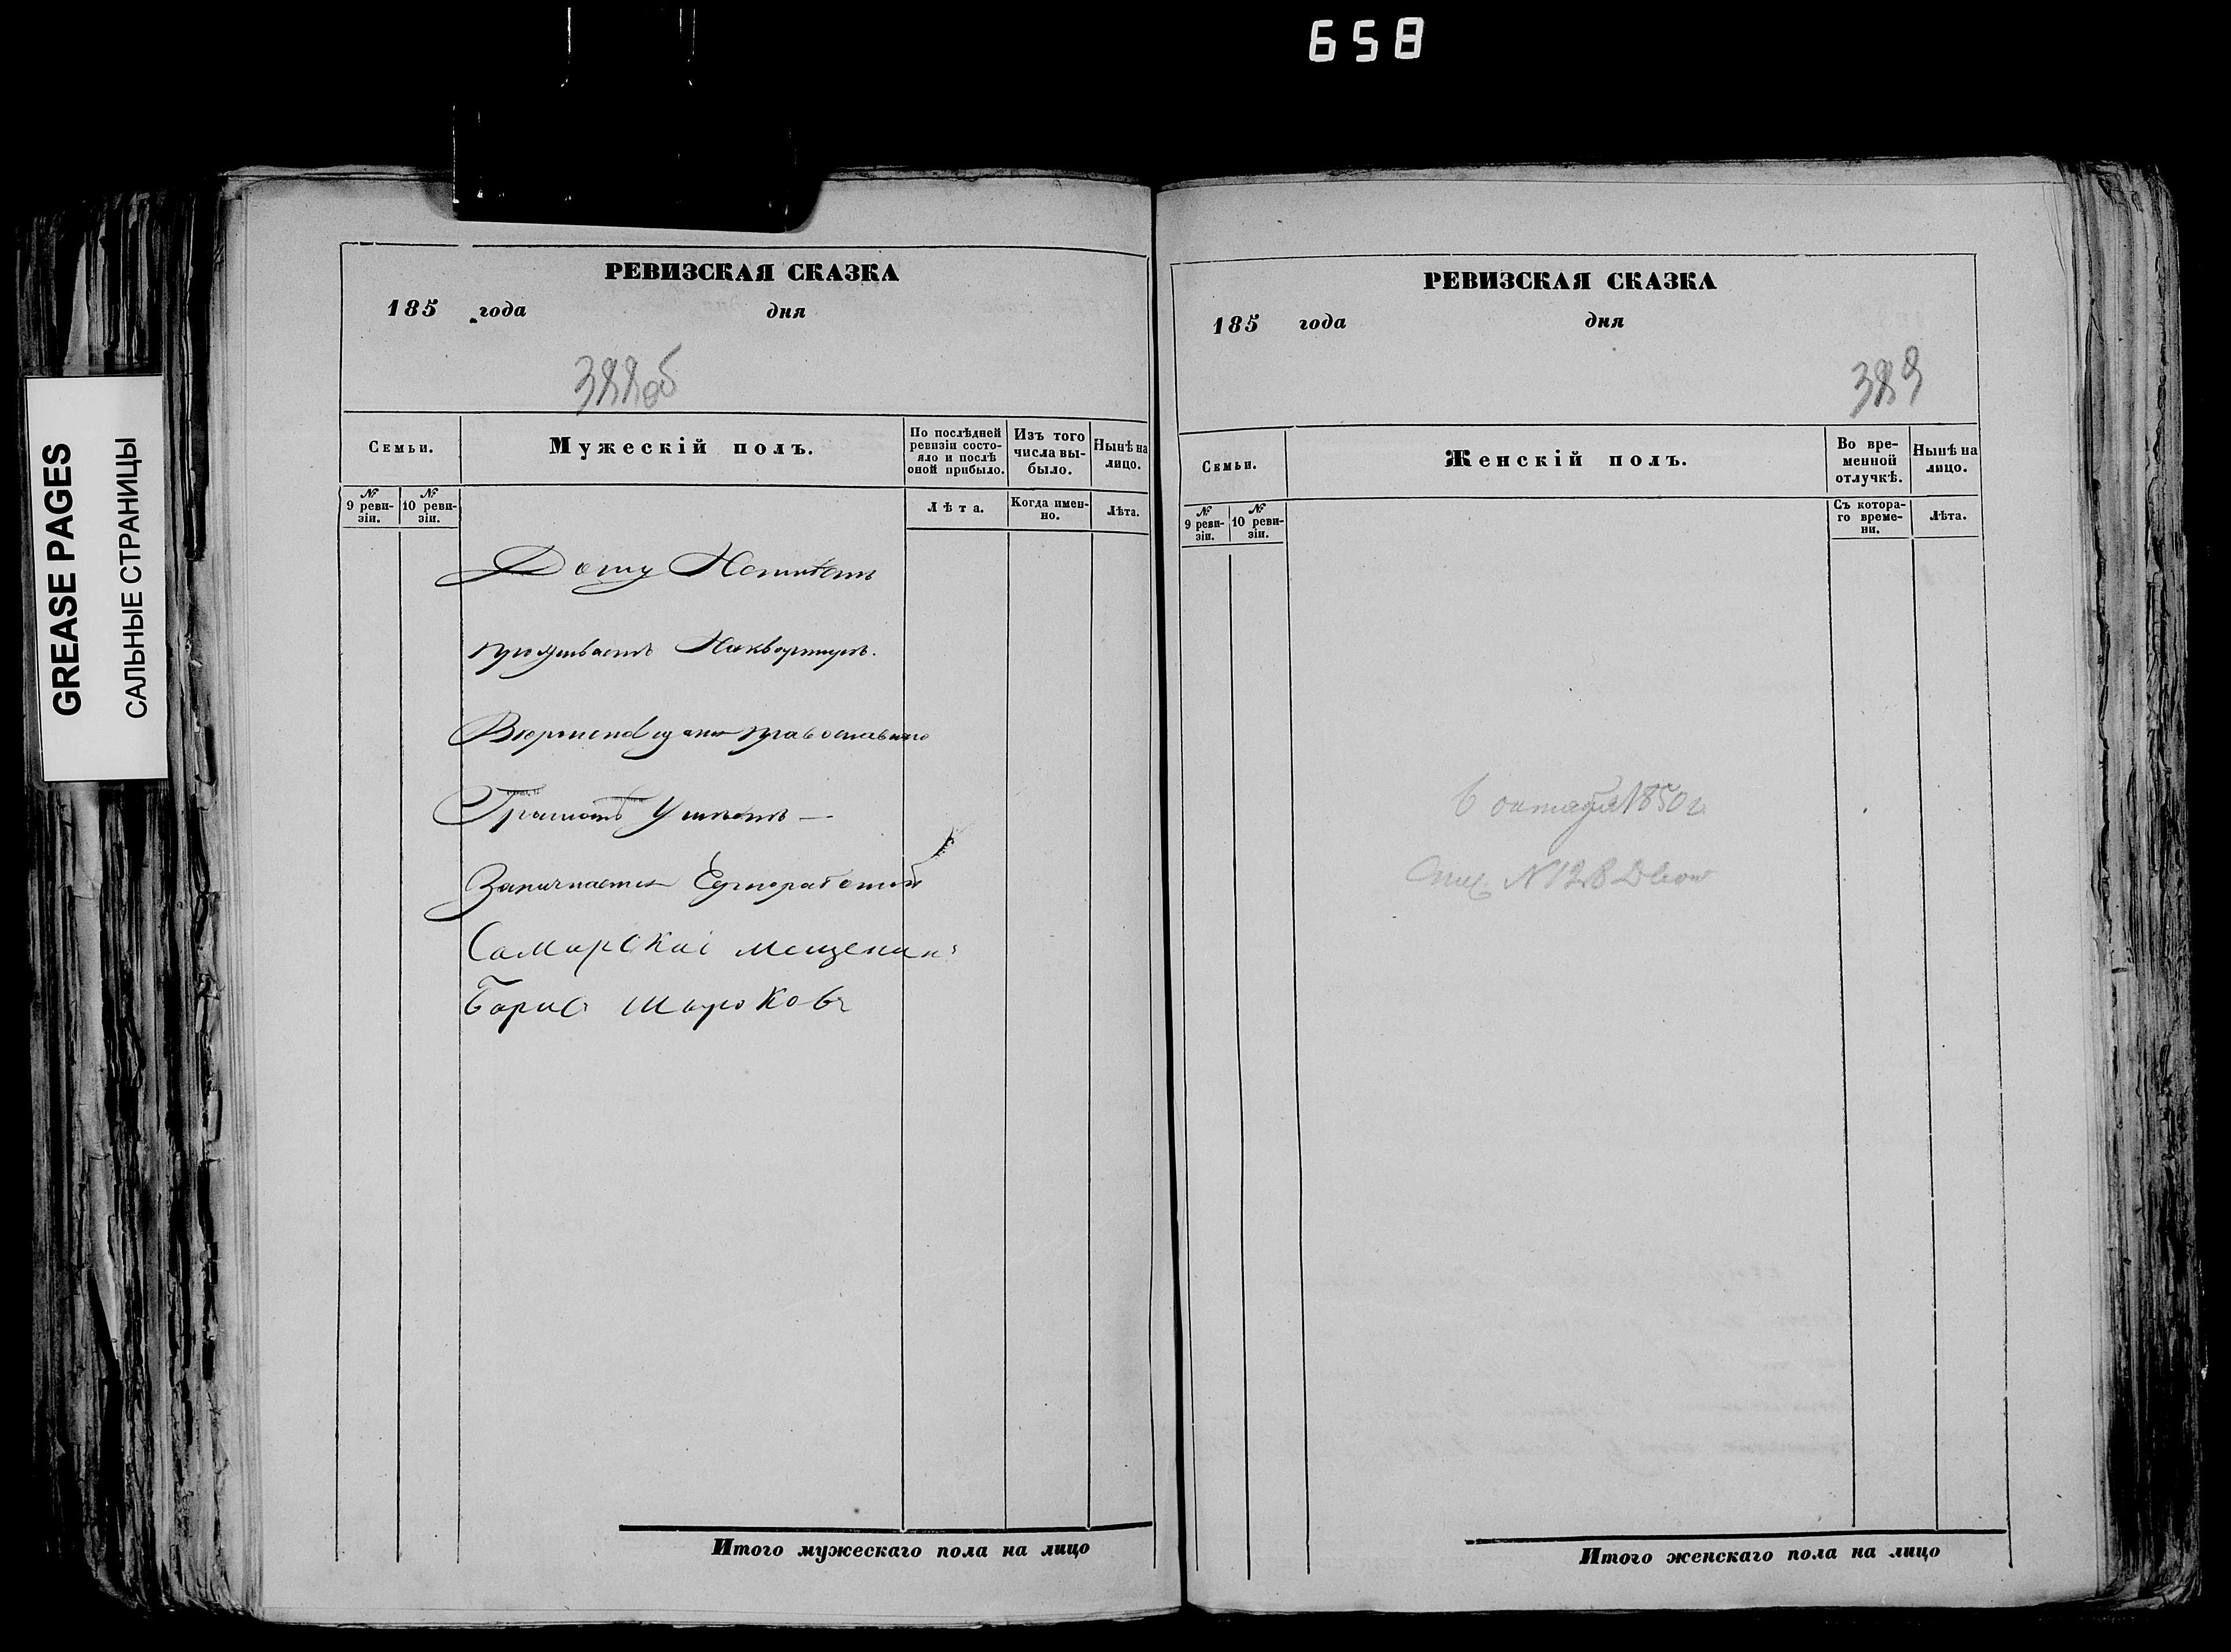 658
GREASE PAGES
САЛЬНЫЕ СТРАНИЦЫ
РЕВИЗСКАЯ СКАЗКА
185 года дня
388об
Семьи.
Мужескій полъ.
По послѣдней ревизіи состояло и послѣ оной прибыло.
Изъ того числа выбыло.
Нынѣ на лицо.
№ 9 ревизіи.
№ 10 ревизіи.
Лѣта.
Когда именно.
Лѣта.
Дому Неимѣетъ
проживаетъ Наквортире.
православнаго
Грамотѣ Умѣетъ —
Самарскаі мещенинъ
Барис Шароковъ
Итого мужескаго пола на лицо
РЕВИЗСКАЯ СКАЗКА
185 года дня
389
Семьи.
Женскій полъ.
Во временной отлучкѣ.
Нынѣ на лицо.
№ 9 ревизіи.
№ 10 ревизіи.
Съ котораго времени.
Лѣта.
6 октября 1850 г.
№ 128
Итого женскаго пола на лицо